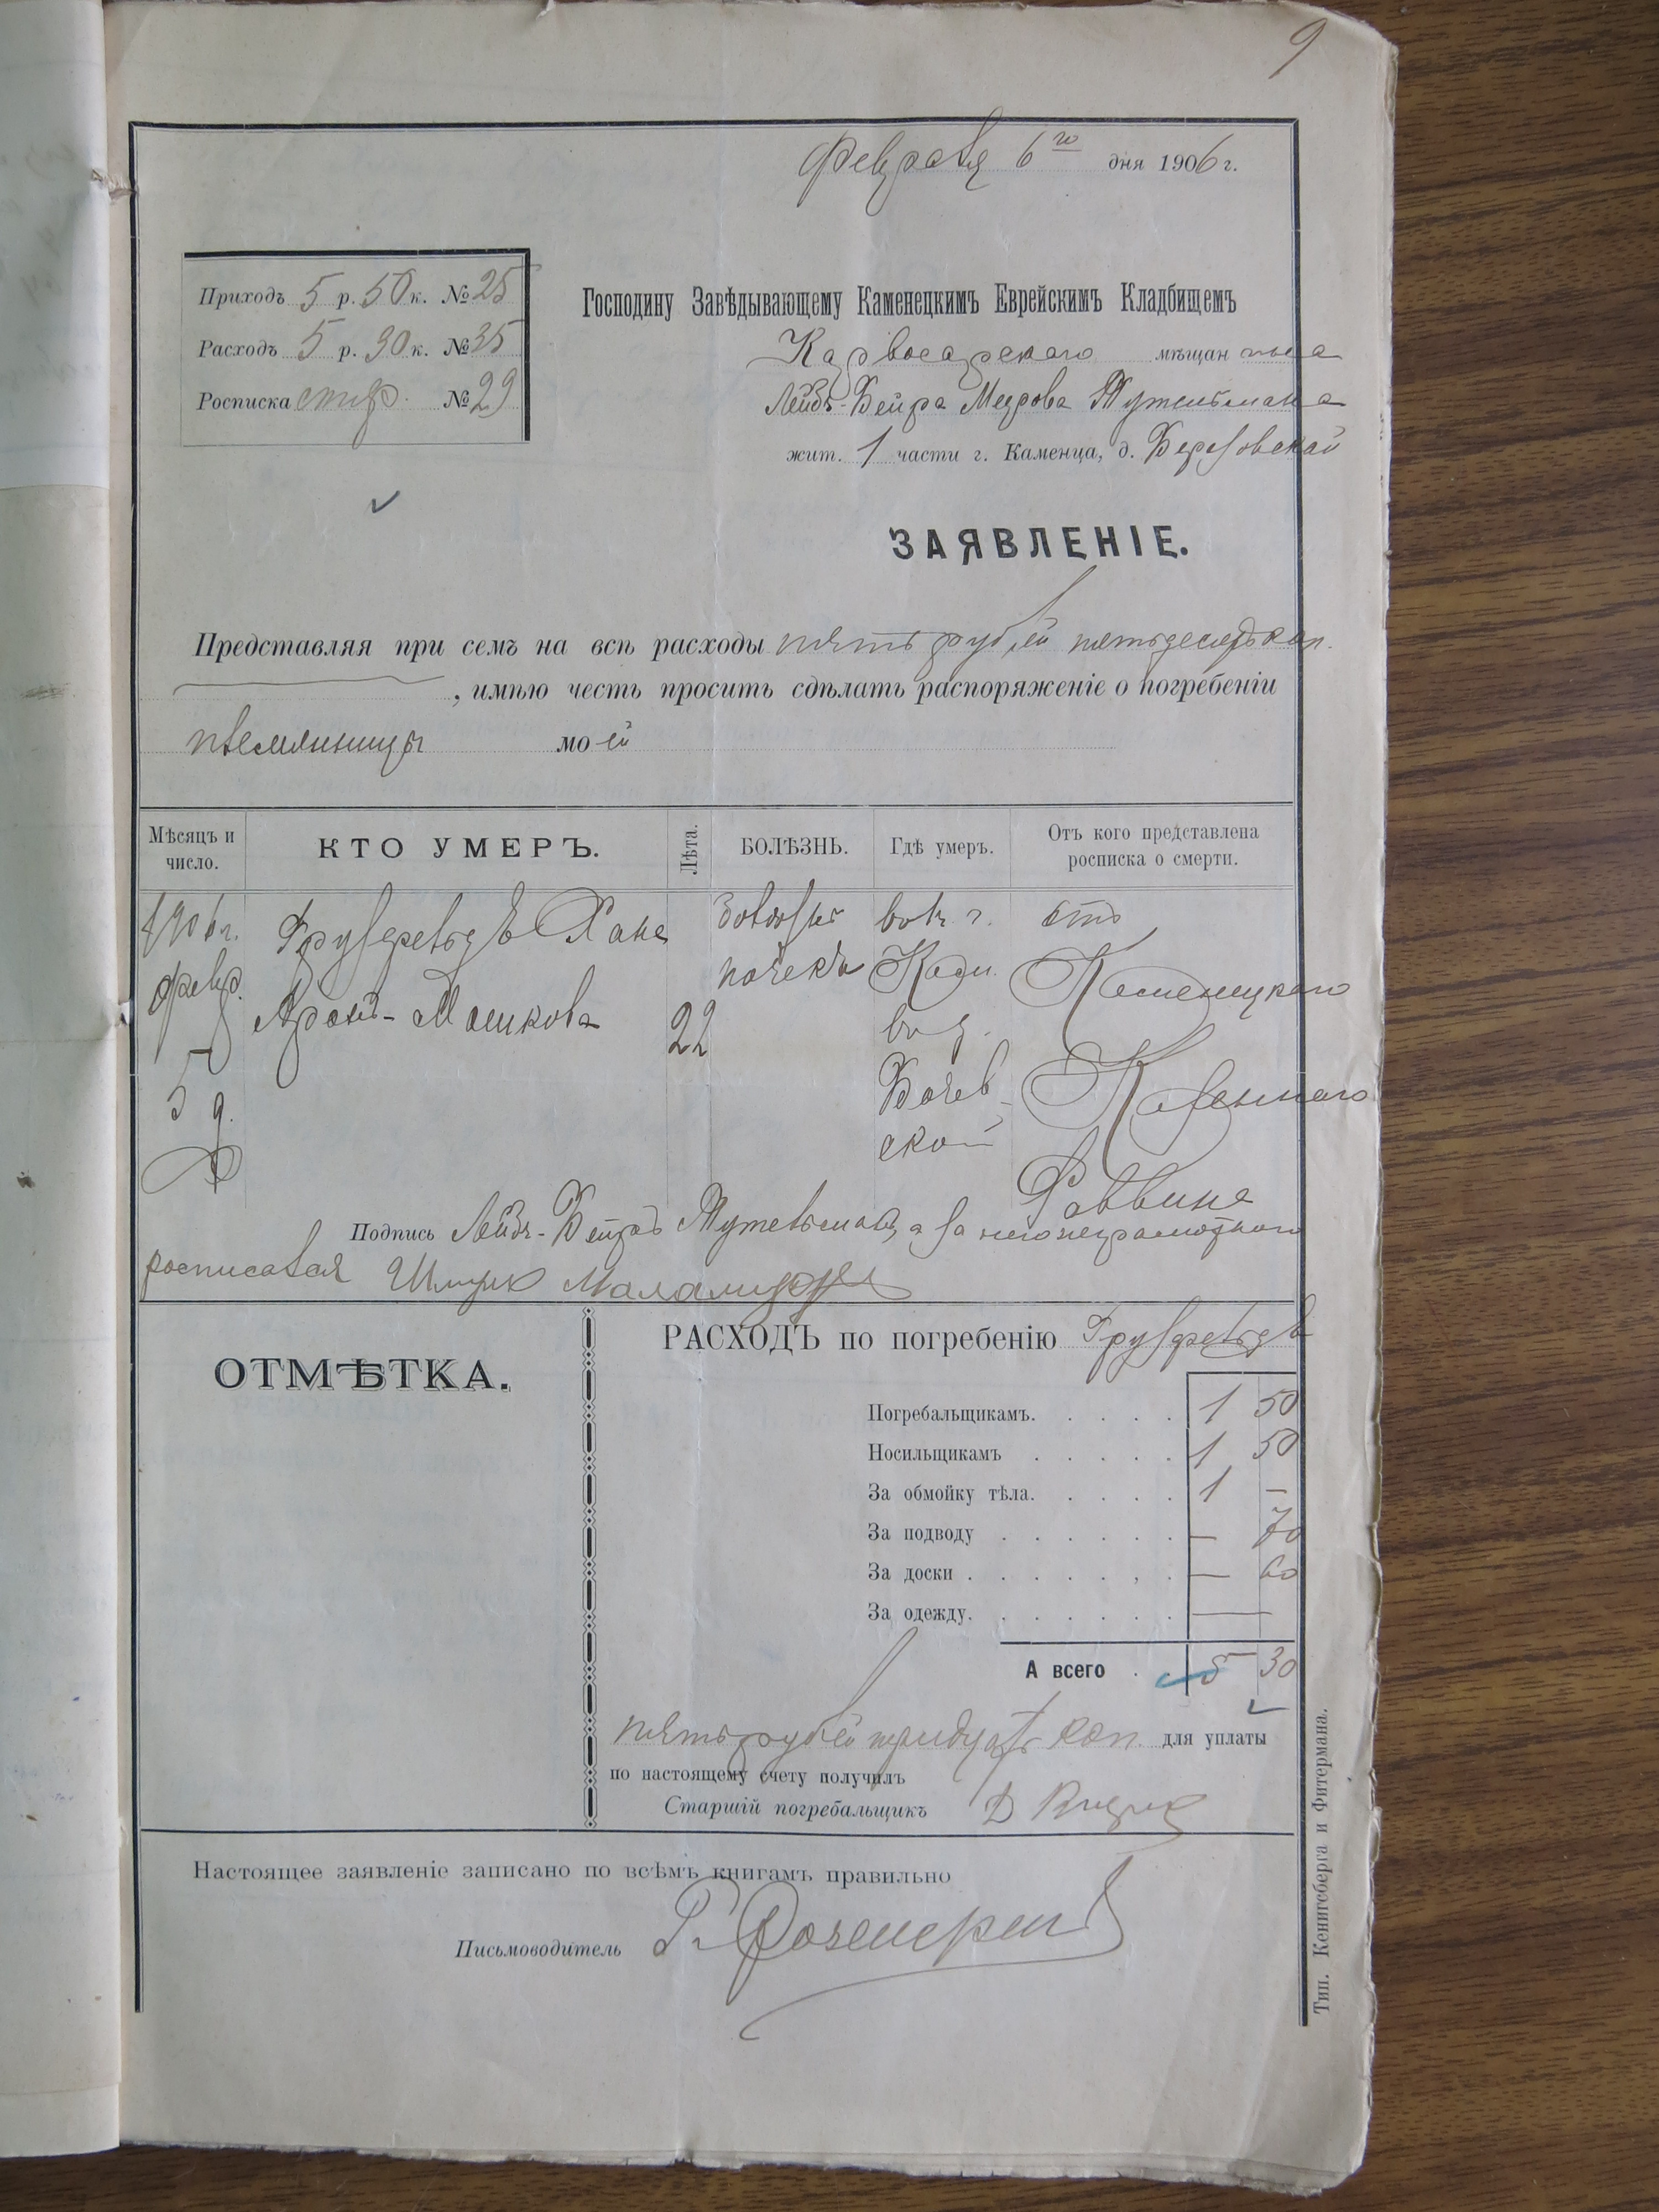 9
Февраля 6го дня 1906 г.
Приходъ 5 р. 50 к. № 25
Расходъ 5 р. 30 к. № 35
Росписка № 29
Господину Завѣдывающему Каменецкимъ Еврейскимъ Кладбищемъ
Карвасарскаго мѣщанина
Лейбъ-Бейра Меерова
жит. 1 части г. Каменца, д. Березовской
ЗАЯВЛЕНІЕ.
Представляя при семъ на всѣ расходы пять рублей пятьдесятъ коп.
, имѣю честь просить сдѣлать распоряженіе о погребеніи
племянницы моей
Мѣсяцъ и число.
КТО УМЕРЪ.
Лѣта.
БОЛѢЗНЬ.
Гдѣ умеръ.
Отъ кого представлена росписка о смерти.
1906 г.
февр.
5 д.
Грузфельдъ Хана
Аронъ-Мошкова
22
почекъ
въ г.
Кам.
въ д.
ской
отъ
Каменецкаго
Казеннаго
Раввина
Подпись Лейбъ-Бейръ а за него неграмотнаго
росписался
ОТМѢТКА.
РАСХОДЪ по погребенію Грузфельдъ
Погребальщикамъ. 1 50
Носильщикамъ 1 50
За обмойку тѣла. 1 –
За подводу — 70
За доски — 60
За одежду. —
А всего 5 30
пять рублей тридцать коп. для уплаты
по настоящему счету получилъ
Старшій погребальщикъ
Настоящее заявленіе записано по всѣмъ книгамъ правильно
Письмоводитель
Тип. Кенигсберга и Фитермана.